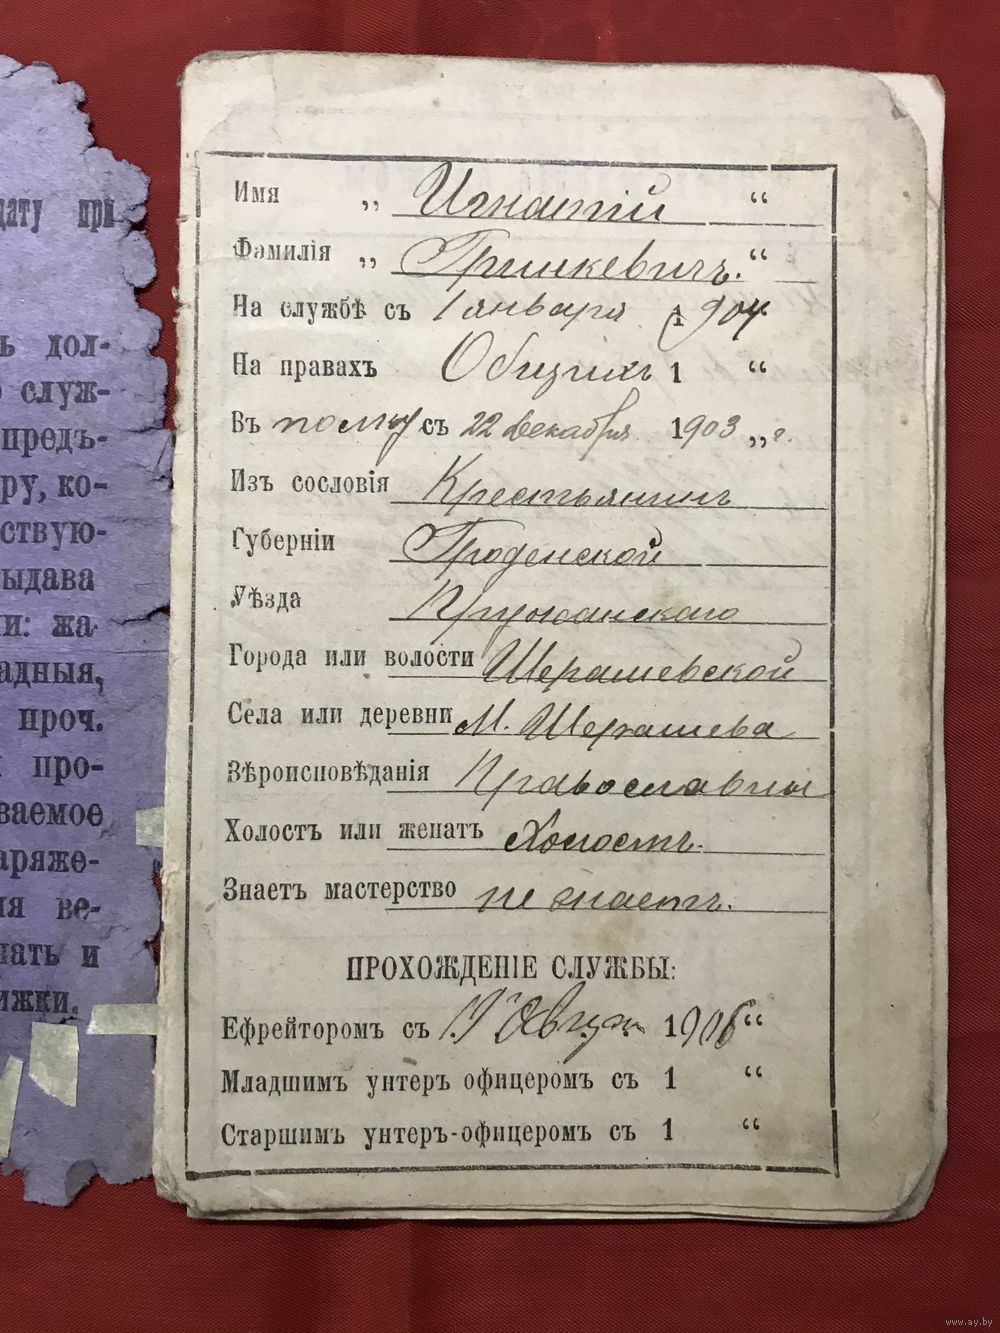 дату при
ь дол-
служ-
предъ-
ру, ко-
ствую-
ыдава
и: жа-
адныя,
проч.
про-
ваемое
аряже-
ія ве-
чать и
ижки.
Имя „ Игнатій “
Фамилія „ Гринкевичъ. “
На службѣ съ 1 января 1904
На правахъ Общихъ 1 “
Въ полку съ 22 декабря 1903 „ г.
Изъ сословія Крестьянинъ
Губерніи Гроденской
Уѣзда Пружанскаго
Города или волости Шерашевской
Села или деревни М. Шерашева
Вѣроисповѣданія Православны
Холостъ или женатъ Холостъ.
Знаетъ мастерство не знаетъ.
ПРОХОЖДЕНІЕ СЛУЖБЫ:
Ефрейторомъ съ Август 1906 “
Младшимъ унтеръ офицеромъ съ 1 “
Старшимъ унтеръ-офицеромъ съ 1 “
www.ay.by